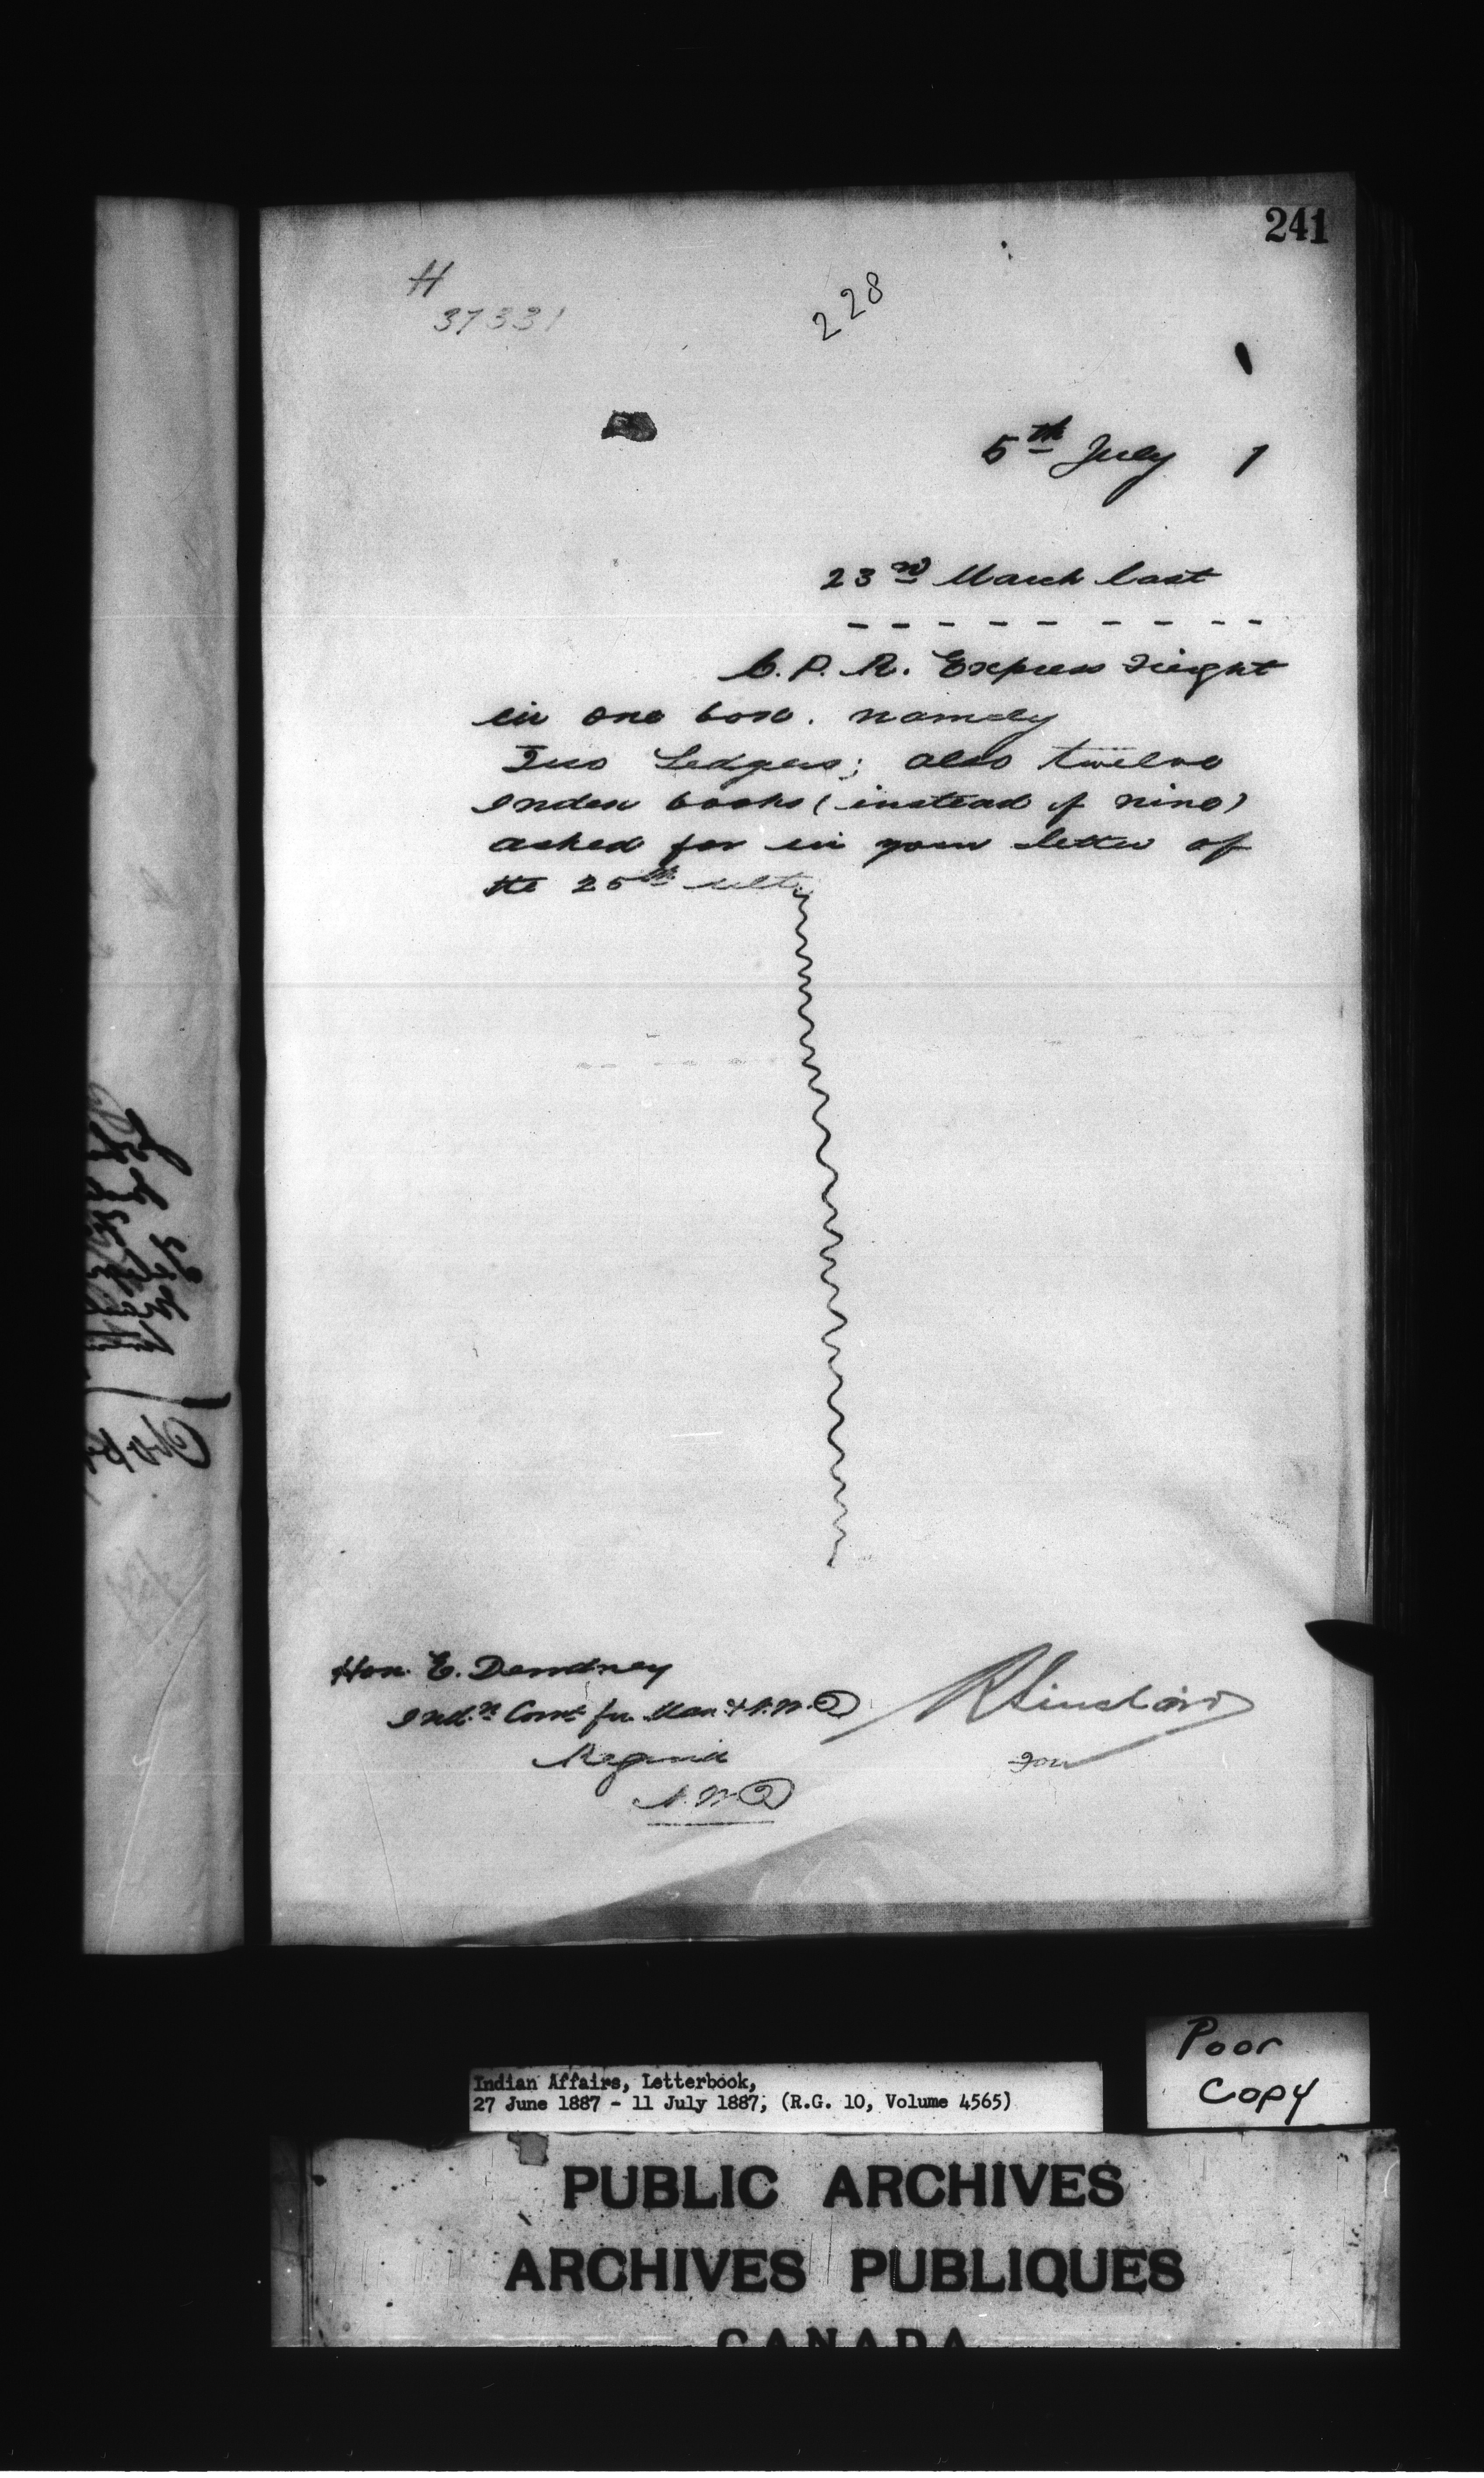 241
H
37331
228
5th July 1
23rd March last
C. P. R. Express Freight
in one box. namely
Two Ledgers; also twelve
Index books (instead of nine)
asked for in your letter of
the 25th ult.
Hon. E. Dewdney
Ind.n Comr for Man & N.W.T
Regina
N.W.T
R Sinclair
for
Poor
Copy
Indian Affairs, Letterbook,
27 June 1887 - 11 July 1887, (R.G. 10, Volume 4565)
PUBLIC ARCHIVES
ARCHIVES PUBLIQUES
CANADA